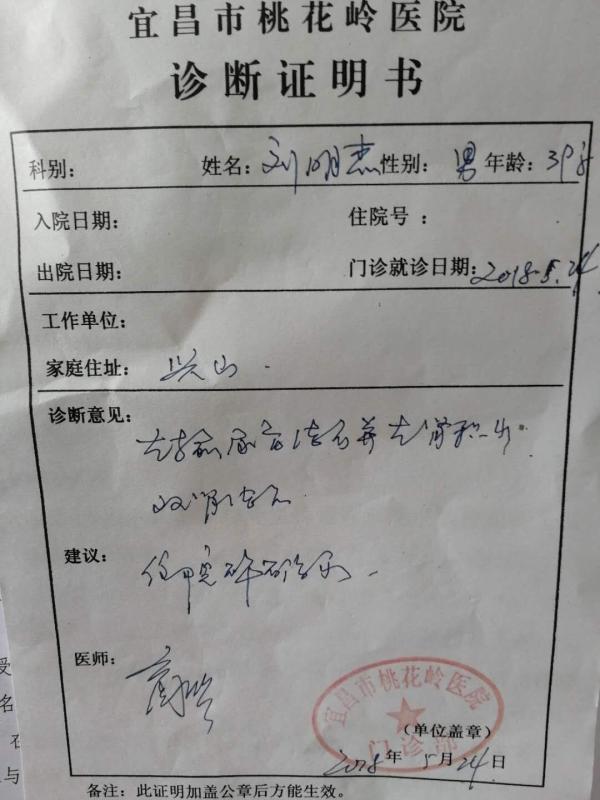 宜昌市桃花岭医院
诊断证明书
科别: 姓名: 刘明杰 性别: 男 年龄: 39岁
入院日期: 住院号:
出院日期: 门诊就诊日期: 2018.5.24
工作单位:
家庭住址: 兴山
诊断意见:
左输尿管结石并左肾积水
双肾结石
建议: 碎石治疗
医师:
宜昌市桃花岭医院
门诊部
(单位盖章)
2018年5月24日
备注: 此证明加盖公章后方能生效。
授
名
与